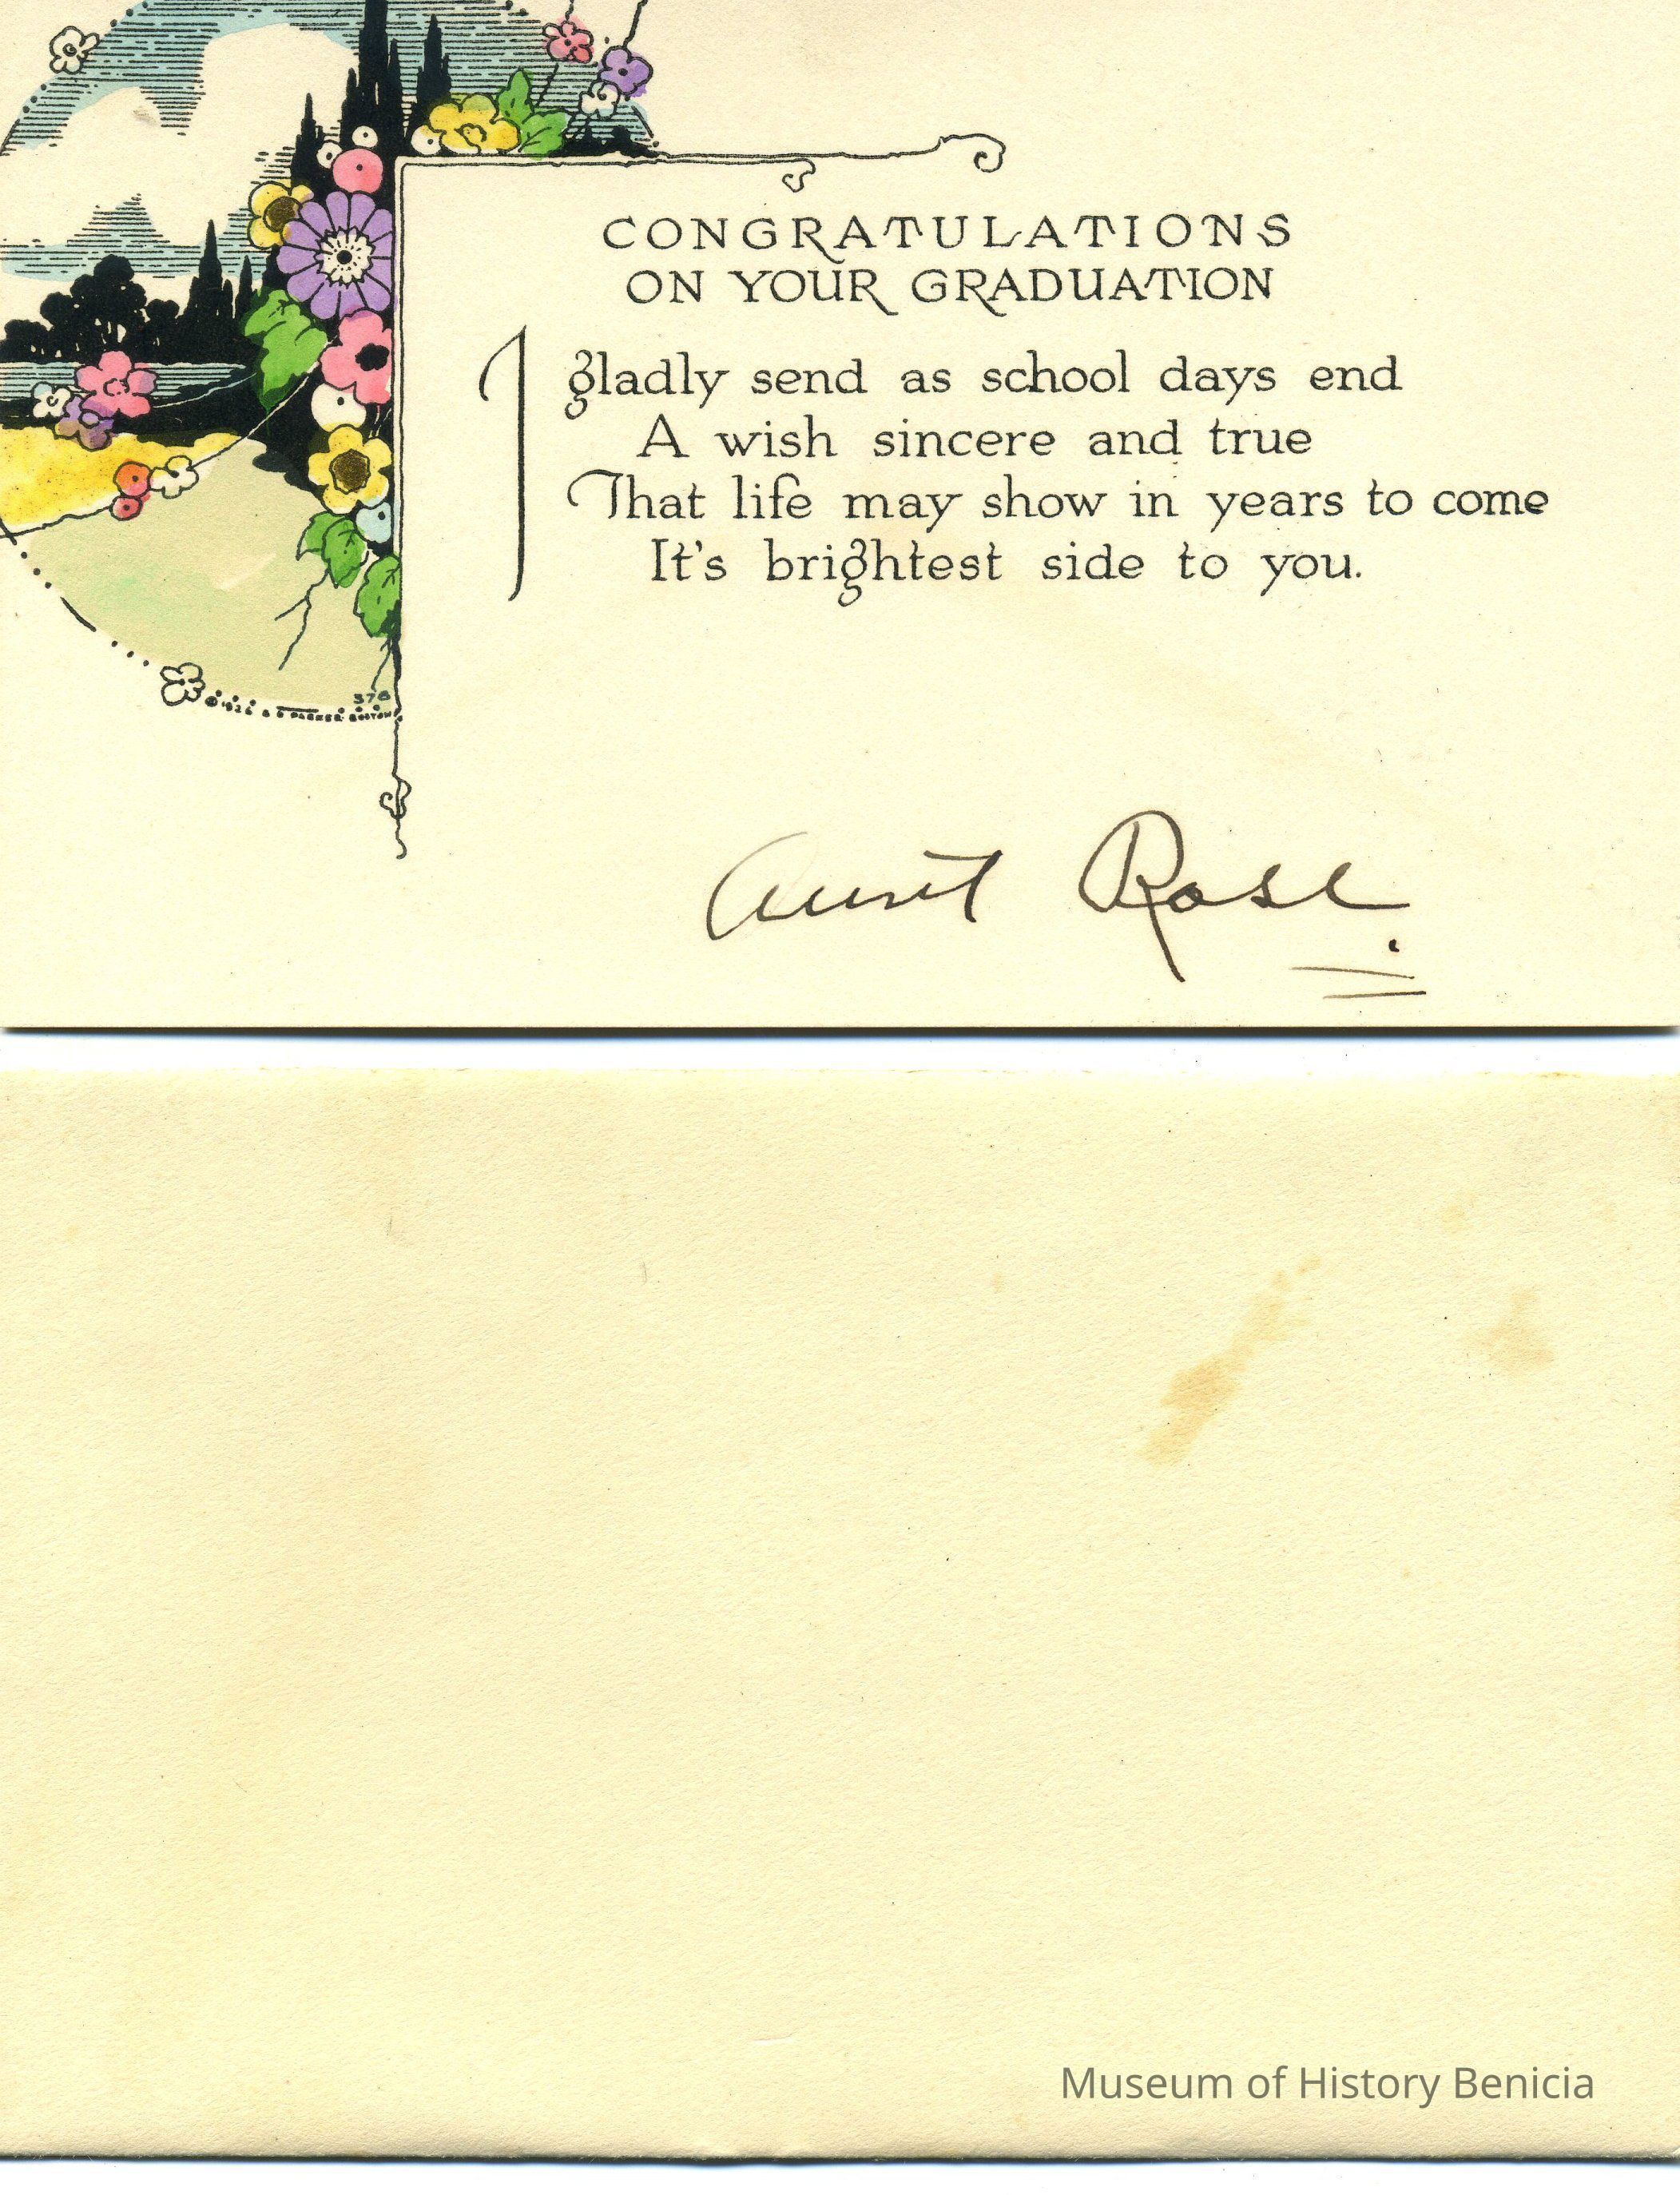 CONGRATULATIONS
ON YOUR GRADUATION
I gladly send as school days end
A wish sincere and true
That life may show in years to come
It's brightest side to you.
378
PARKER BOSTON
Aunt Rose.
Museum of History Benicia